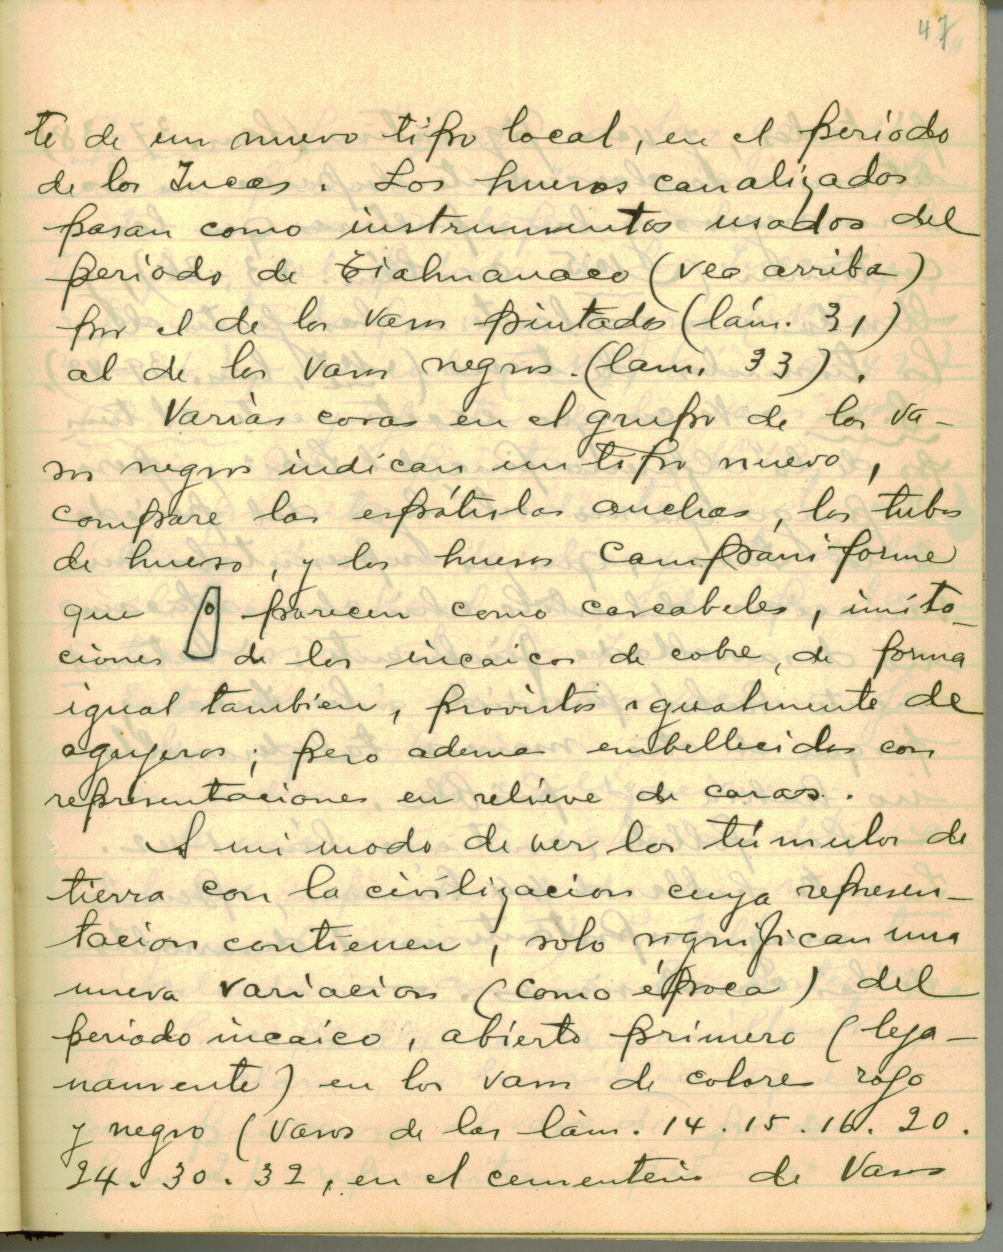 47
te de un nuevo tipo local, en el periodo
de los Incas. Los huesos canalizados
pasan como instrumentos usados del
periodo de Tiahuanaco (vea arriba)
por el de los vasos pintados (lám. 31)
al de los vasos negros. (lam. 33).
Varias cosas en el grupo de los va-
sos negros indican un tipo nuevo,
compare las espátulas anchas, los tubos
de hueso, y los huesos campaniforme
que parecen como cascabeles, imita-
ciones de los incaicos de cobre, de forma
igual tambien, provistos igualmente de
agujeros; pero ademas embellecidos con
representaciones en relieve de caras.
A mi modo de ver los túmulos de
tierra con la civilizacion cuya represen-
tacion contienen, solo significan una
nueva variacion (como época) del
periodo incaico, abierto primero (leja-
namente) en los vasos de colores rojo
y negro (vasos de las lám. 14. 15. 16. 20.
24. 30. 32, en el cementerio de vasos